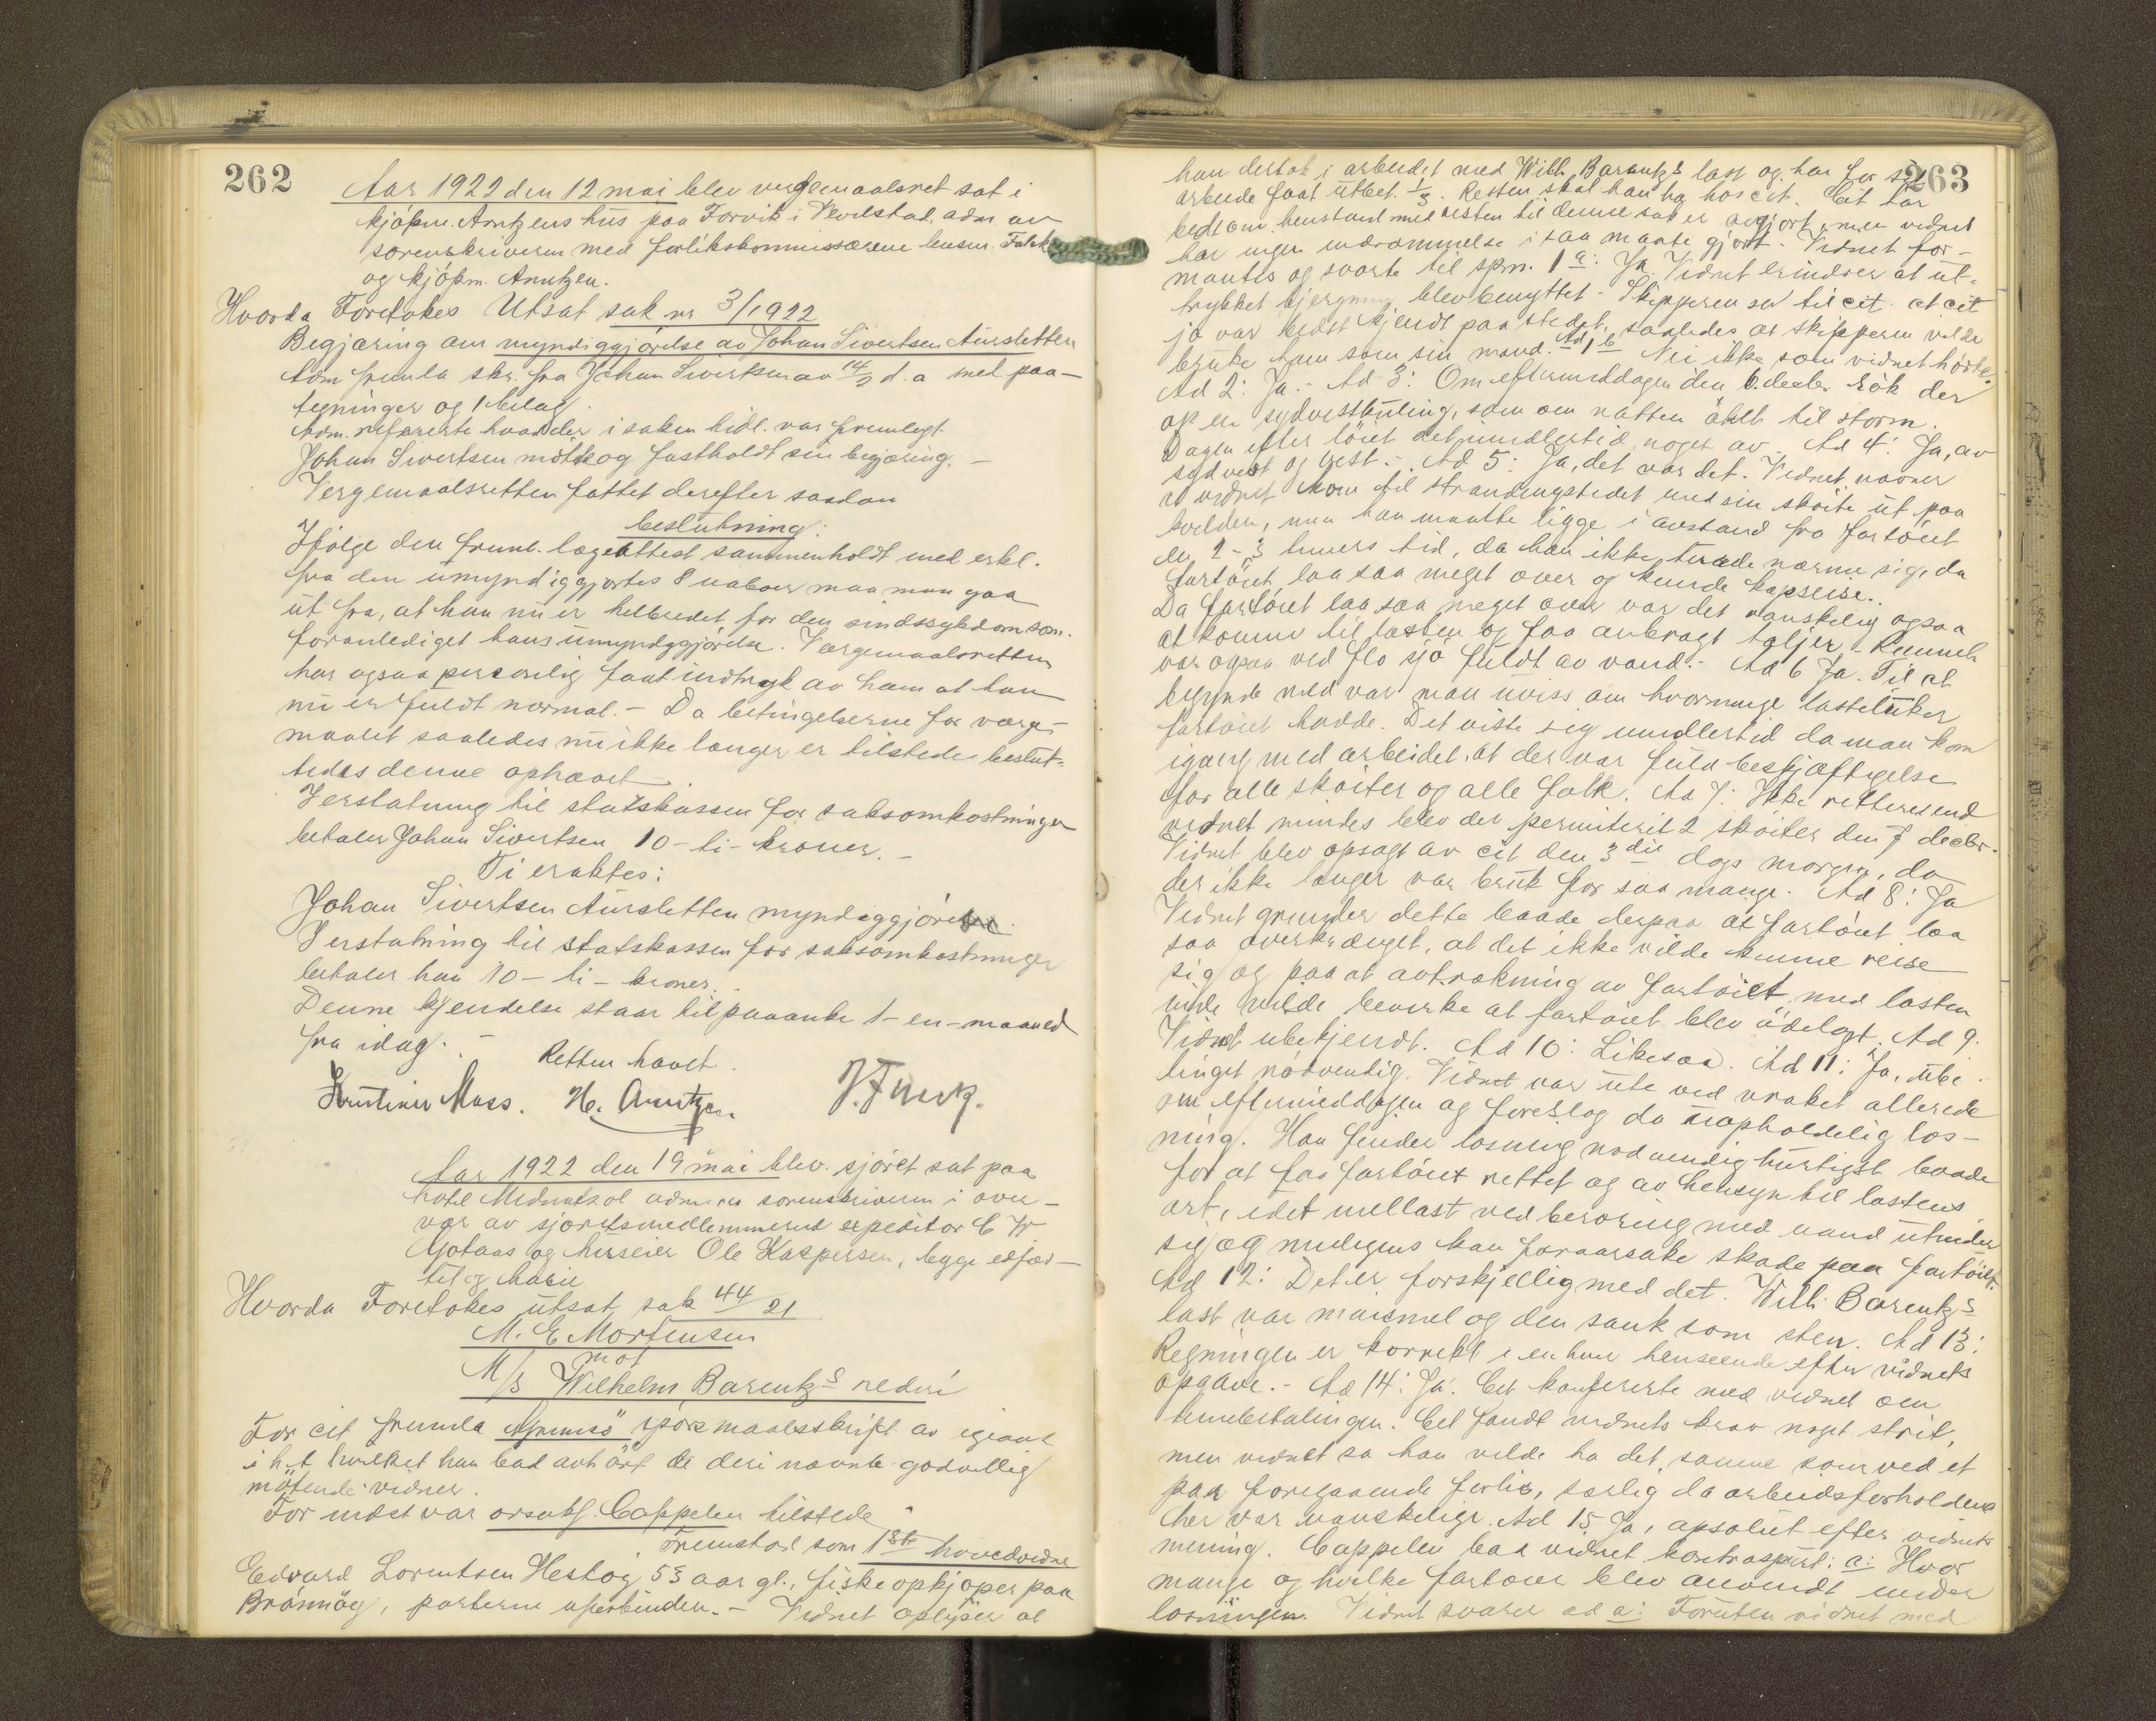 262
Aar 1922 den 12 mai blev vergemaalsret sat i
kjøpm. Arntzens hus paa Forvik i Vevelstad, adm. av
sorenskriveren med forlikskommissærene lensm. Falck
og kjøpm. Arntzen.
Hvorda Foretokes Utsat sak nr. 3/1922
Begjæring om myndiggjørelse av Johan Sivertsen Aursletten
Adm fremla skr. fra Johan Sivertsen av 14/2 d. a med paa-
tegninger og 1 bilag.
Adm. refererte hvad der i saken hidt. var fremlagt.
Johan Sivertsen møtte og fastholdt sin begjæring. -
Vergemaalsretten fattet derefter saadan
beslutning:
Ifølge den freml. lægeattest sammenholdt med erkl.
fra den umyndiggjortes 8 naboer maa man gaa
ut fra, at han nu er helbredet for den sindssykdom som
foranlediget hans umyndiggjørelse. Vergemaalsretten
har ogsaa personlig faat indtryk av ham at han
nu er fuldt normal. - Da betingelserne for verge-
maalet saaledes nu ikke længer er tilstede beslut-
tedes denne ophævet.
I erstatning til statskassen for saksomkostninger
betaler Johan Sivertsen 10 - ti - kroner. -
Ti eraktes:
Johan Sivertsen Aursletten myndiggjøres.
I erstatning til statskassen for saksomkostninger
betaler han 10 - ti - kroner.
Denne kjendelse staar til paaanke 1 - en - maaned
fra idag. -
Retten hævet.
Mass. H. Arntzen
Aar 1922 den 19 mai blev sjøret sat paa
hotel Midnatsol adm av sorenskriveren i over-
vær av sjøretsmedlemmerne expeditør C W
Gotaas og huseier Ole Kaspersen, begge
Hvorda Foretokes utsat sak 44/21
M. E Mortensen
mot
M/s Wilhelm Barentz's rederi
For cit fremla spørsmaalsskrift av igaar
i h.t hvilket han bad avhørt de deri nævnte godvillig
møtende vidner.
For indst var orsakf. Cappelen tilstede.
Fremstod som 1ste hovedvidne
Edvard Lorentsen Hestøy 53 aar gl., fiskeopkjøper paa
Brønnøy, parterne uforbunden. - Vidnet oplyser at
263
han deltok i arbeidet med Wilh. Barentz's last og har for sit
arbeide faat utbet. 1/3. Resten skal han ha hos cit. Cit har
bedt om henstand med resten til denne sak er avgjort, men vidnet
har ingen indrømmelse i saa maate gjort. Vidnet for-
mantes og svarte til spm. 1 a: Ja. Vidnet erindrer at ut-
trykket bjergning blev benyttet - Skipperen sa til cit. at cit
jo var bedst kjendt paa stedet, saaledes at skipperen vilde
bruke ham som sin mand. Ad 1 b Nei ikke som vidnet hørte.
Ad 2: Ja. - Ad 3: Om eftermiddagen den 6. decbr. røk der
op en sydvestkuling, som om natten økte til storm.
Dagen efter løiet det imidlertid noget av. Ad 4: Ja, av
sydvest og vest. - Ad 5: Ja, det var det. Vidnet nævner
at vidnet kom til strandingstedet med sin skøite ut paa
kvelden, men han maatte ligge i avstand fra fartøiet
en 2-3 timers tid, da han ikke turde nærme sig, da
fartøiet laa saa meget over og kunde kapseise.
Da fartøiet laa saa meget over var det vanskelig ogsaa
at komme til lasten og faa anbragt taljer. - Rummet
var ogsaa ved flo sjø fuldt av vand. - Ad 6 Ja. Til at
begynde med var man uviss om hvormange lasteluker
fartøiet hadde. Det viste sig imidlertid da man kom
igang med arbeidet, at der var fuld beskjæftigelse
for alle skøiter og alle folk. Ad 7: Ikke rettere end
vidnet mindes blev der permiterit 2 skøiter den 7 decbr.
Vidnet blev opsagt av cit den 3die dags morgen, da
der ikke længer var bruk for saa mange. Ad 8: Ja
Vidnet grunder dette baade derpaa at fartøiet laa
saa overkrænget, at det ikke vilde kunne reise
sig og paa at avtrækning av fartøiet med lasten
inde vilde bevirke at fartøiet blev ødelagt. Ad 9.
Vidnet ubekjendt. Ad 10: Likesaa. Ad 11: Ja, ube-
tinget nødvendig. Vidnet var ute ved vraket allerede
om eftermiddagen og foreslog da uopholdelig los-
ning. Han finder losning nødvendig hurtigst baade
for at faa fartøiet rettet og av hensyn til lastens
art, idet mellast ved berøring med vand utvider
sig og muligens kan foraarsake skade paa fartøiet.
Ad 12: Det er forskjellig med det. Wilh Barentz's
last var maismel og den sank som sten. Ad 13:
Regningen er korrekt i enhver henseende efter vidnets
opgave. - Ad 14: Ja. Cit konfererte med vidnet om
timebetalingen. Cit fandt vidnets krav noget strit,
men vidnet sa han vilde ha det samme som ved et
paa foregaaende forlis, særlig da arbeidsforholdene
her var vanskelige. Ad 15 Ja, absolut efter vidnets
mening. Cappelen bad vidnet kontraspurt: a: Hvor
mange og hvilke fartøier blev anvendt under
losningen. Vidnet svarer ad a: Foruten vidnet med